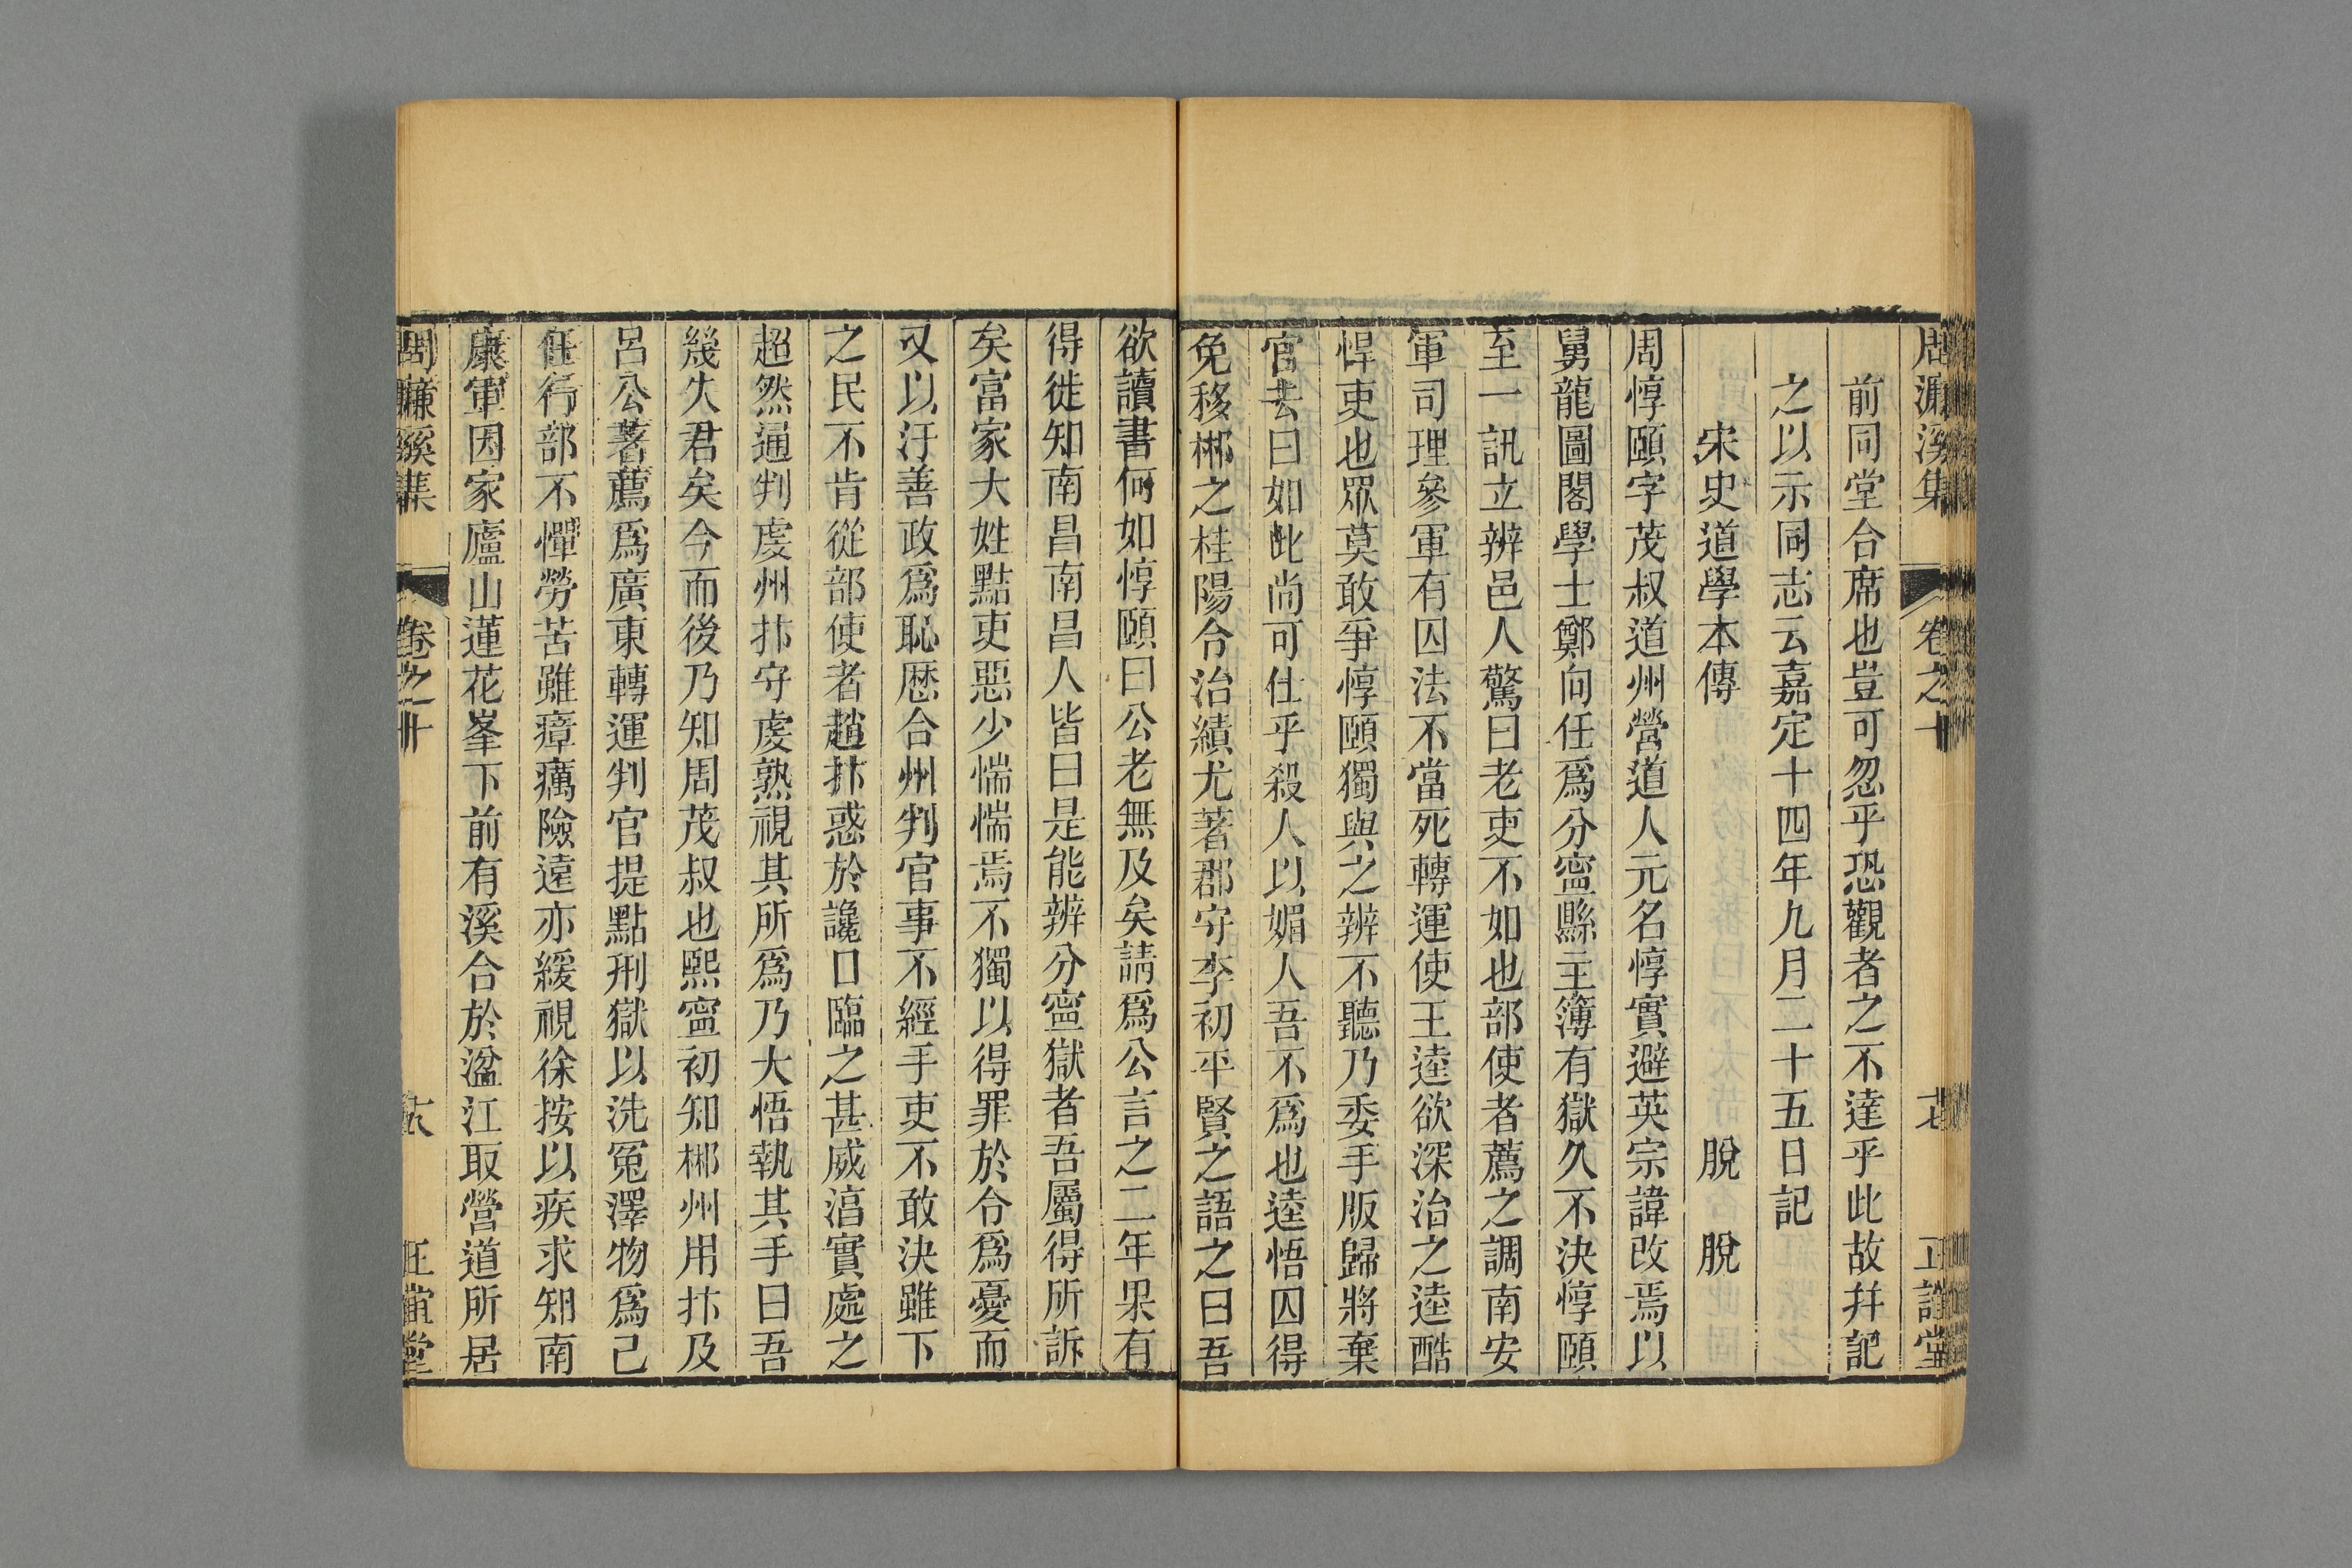 周濂溪集 卷之十 十七 正誼堂
前同堂合席也豈可忽乎恐觀者之不達乎此故幷記
之以示同志云嘉定十四年九月二十五日記
宋史道學本傳 脫 脫
周惇頤字茂叔道州營道人元名惇實避英宗諱改焉以
舅龍圖閣學士鄭向任爲分寧縣主簿有獄久不決惇頤
至一訊立辨邑人驚曰老吏不如也部使者薦之調南安
軍司理參軍有囚法不當死轉運使王逵欲深治之逵酷
悍吏也眾莫敢爭惇頤獨與之辨不聽乃委手版歸將棄
官去曰如此尚可仕乎殺人以媚人吾不爲也逵悟囚得
免移郴之桂陽令治績尤著郡守李初平賢之語之曰吾
欲讀書何如惇頤曰公老無及矣請爲公言之二年果有
得徙知南昌南昌人皆曰是能辨分寧獄者吾屬得所訴
矣富家大姓黠吏惡少惴惴焉不獨以得罪於令爲憂而
又以汙善政爲恥歷合州判官事不經手吏不敢決雖下
之民不肯從部使者趙抃惑於讒口臨之甚威湻實處之
超然通判虔州抃守虔熟視其所爲乃大悟執其手曰吾
幾失君矣今而後乃知周茂叔也熙寧初知郴州用抃及
呂公著薦爲廣東轉運判官提點刑獄以洗冤澤物爲己
任行部不憚勞苦雖瘴癘險遠亦緩視徐按以疾求知南
康軍因家廬山蓮花峯下前有溪合於湓江取營道所居
周濂溪集 卷之十 十八 正誼堂